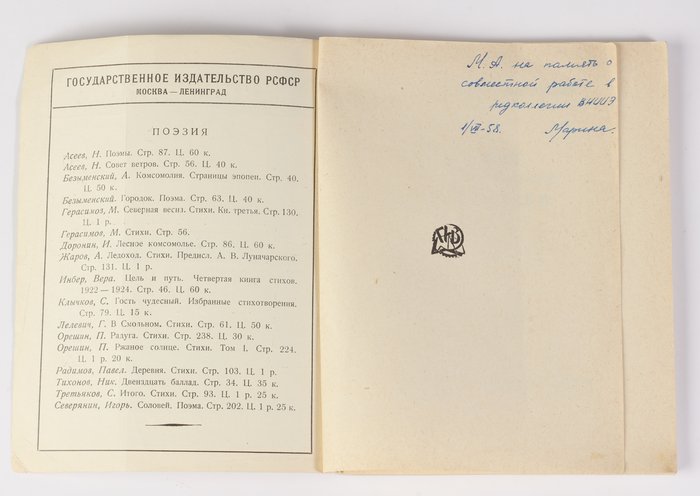 ГОСУДАРСТВЕННОЕ ИЗДАТЕЛЬСТВО РСФСР
МОСКВА — ЛЕНИНГРАД
ПОЭЗИЯ
Асеев, Н. Поэмы. Стр. 87. Ц. 60 к.
Асеев, Н. Совет ветров. Стр. 56. Ц. 40 к.
Безыменский, А. Комсомолия. Страницы эпопеи. Стр. 40.
Ц. 50 к.
Безыменский. Городок. Поэма. Стр. 63. Ц. 40 к.
Герасимов, М. Северная весна. Стихи. Кн. третья. Стр. 130.
Ц. 1 р.
Герасимов, М. Стихи. Стр. 56.
Доронин, И. Лесное комсомолье. Стр. 86. Ц. 60 к.
Жаров, А. Ледоход. Стихи. Предисл. А. В. Луначарского.
Стр. 131. Ц. 1 р.
Инбер, Вера. Цель и путь. Четвертая книга стихов.
1922 — 1924. Стр. 46. Ц. 60 к.
Клычков, С. Гость чудесный. Избранные стихотворения.
Стр. 79. Ц. 15 к.
Лелевич, Г. В Смольном. Стихи. Стр. 61. Ц. 50 к.
Орешин, П. Радуга. Стихи. Стр. 238. Ц. 30 к.
Орешин, П. Ржаное солнце. Стихи. Том I. Стр. 224.
Ц. 1 р. 20 к.
Радимов, Павел. Деревня. Стихи. Стр. 103. Ц. 1 р.
Тихонов, Ник. Двенадцать баллад. Стр. 34. Ц. 35 к.
Третьяков, С. Итого. Стихи. Стр. 93. Ц. 1 р. 25 к.
Северянин, Игорь. Соловей. Поэма. Стр. 202. Ц. 1 р. 25 к.
М. А. на память о
совместной работе в
редколлегии ВНИИЭ
1/VII-58. Марина.